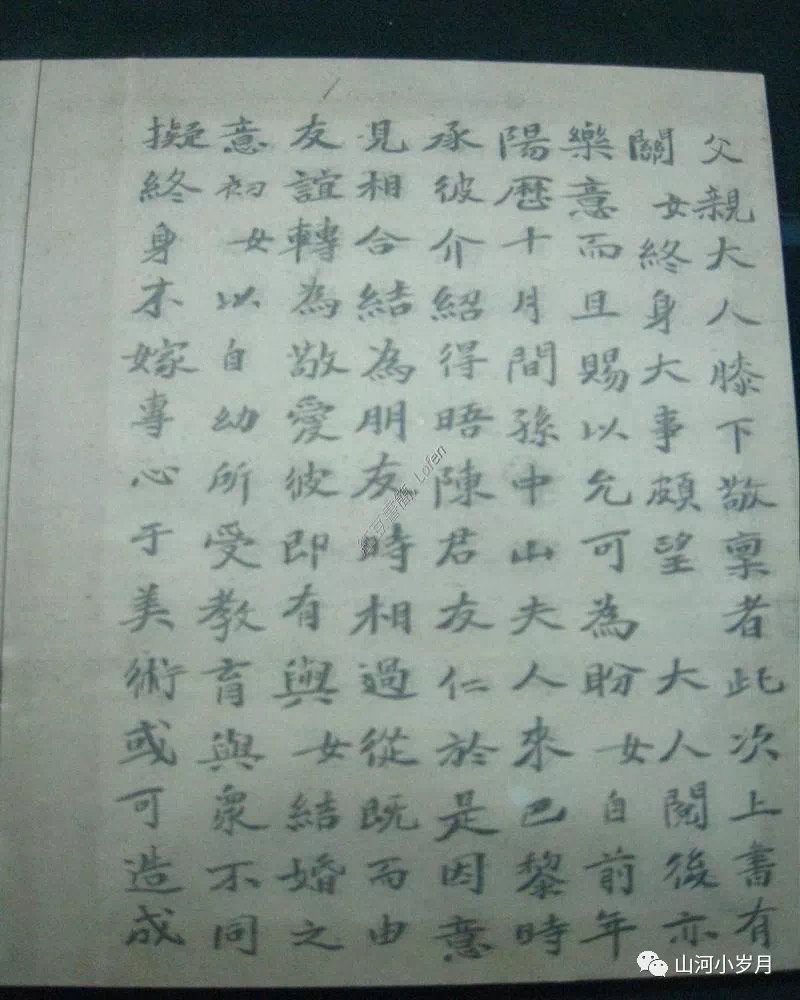 父親大人膝下敬禀者此次上書有
關女終身大事頗望大人閱後亦
樂意而且賜以允可為盼女自前年
陽歷十月間孫中山夫人來巴黎時
承彼介紹得晤陳君友仁於是因意
見相合結為朋友時相過從既而由
友誼轉為敬愛彼即有與女結婚之
意初女以自幼所受教育與眾不同
擬終身不嫁專心于美術或可造成
Lofen
山河小岁月